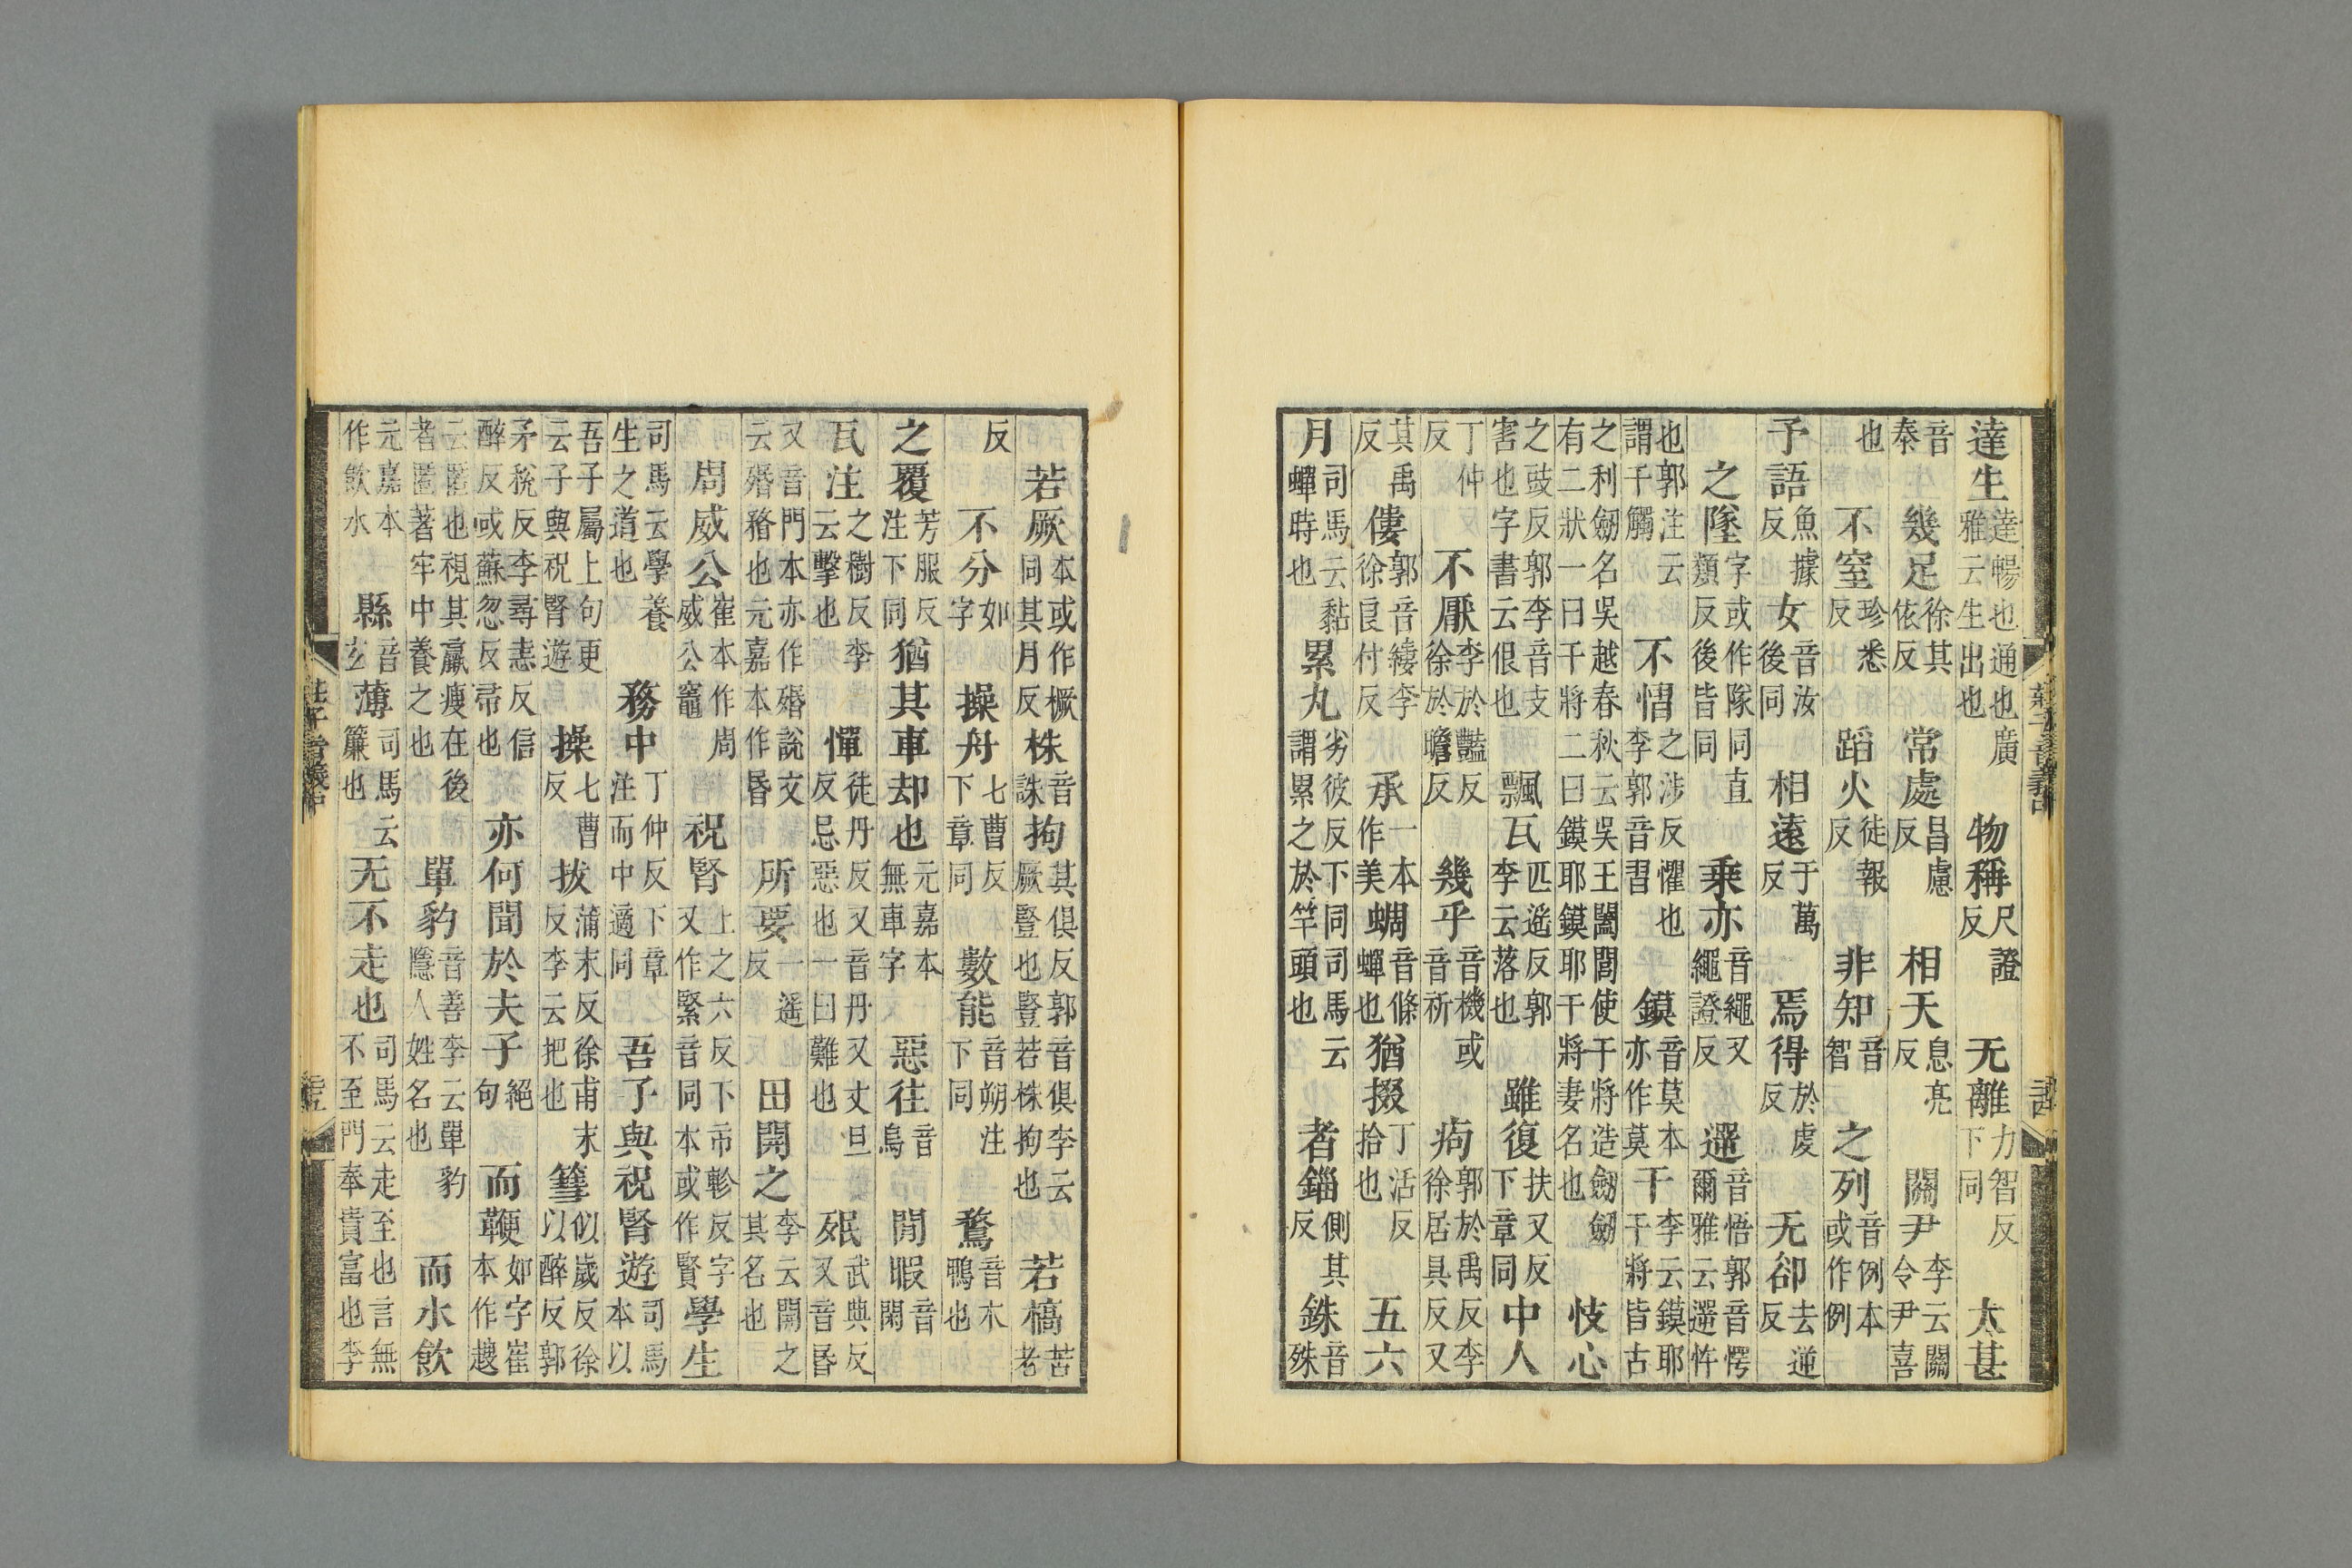 達生達暢也通也廣雅云生出也　物稱尺證反　无離力智反下同　大甚
音泰　幾足徐其依反　常處昌慮反　相天息亮反　關尹李云關令尹喜
也　不窒珍悉反　蹈火徒報反　非知音智　之列音例本或作例
予語魚據反　女音汝後同　相遠于萬反　焉得於虔反　无卻去逆反
之墜字或作隊同直類反後皆同　乘亦音繩又繩證反　遻音悟郭音愕爾雅云遻忤
也郭注云謂干觸　不慴之涉反懼也李郭音習　鏌音莫本亦作莫　干李云鏌耶干將皆古
之利劒名吳越春秋云吳王闔閭使干將造劒劒有二狀一曰干將二曰鏌耶鏌耶干將妻名也　忮心
之豉反郭李音支害也字書云佷也　飄瓦匹遙反郭李云落也　雖復扶又反下章同　中人
丁仲反　不厭李於豔反徐於瞻反　幾乎音機或音祈　痀郭於禹反李徐居具反又
其禹反　僂郭音縷李徐良付反　承一本作美　蜩音條蟬也　猶掇丁活反拾也　五六
月司馬云黏蟬時也　累丸劣彼反下同司馬云謂累之於竿頭也　者錙側其反　銖音殊
若厥本或作橛同其月反　株音誅　拘其俱反郭音俱李云厥豎也豎若株拘也　若槁苦老
反　不分如字　操舟七曹反下章同　數能音朔注下同　鶩音木鴨也
之覆芳服反注下同　猶其車却也元嘉本無車字　惡往音烏　閒暇音閑
瓦注之樹反李云擊也　憚徒丹反又音丹又丈旦反忌惡也一曰難也　殙武典反又音昏
又音門本亦作㛰說文云殙矜也元嘉本作昏　所要一遙反　田開之李云開之其名也
周威公崔本作周威公竈　祝腎上之六反下市軫反字又作緊音同本或作賢　學生
司馬云學養生之道也　務中丁仲反下章注而中適同　吾子與祝腎遊司馬本以
吾子屬上句更云子與祝腎遊　操七曹反　拔蒲末反徐甫末反李云把也　篲似歲反徐以醉反郭
矛稅反李尋恚反信醉反或蘇忽反帚也　亦何聞於夫子絕句　而鞭如字崔本作趡
云匿也視其羸瘦在後者匿著牢中養之也　單豹音善李云單豹隱人姓名也　而水飲
元嘉本作飲水　縣音玄　薄司馬云簾也　无不走也司馬云走至也言無不至門奉貴富也李